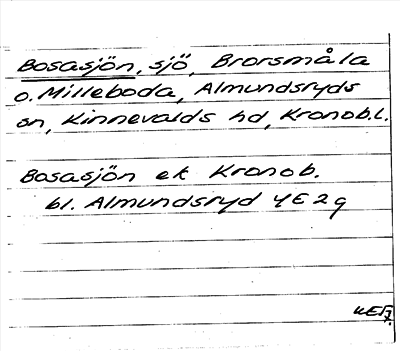 Bosasjön, sjö, Brorsmåla
o. Milleboda, Almundsryds
sn, Kinnevalds hd, Kronob.l.
Bosasjön ek Kronob.
bl. Almundsryd 4E2g